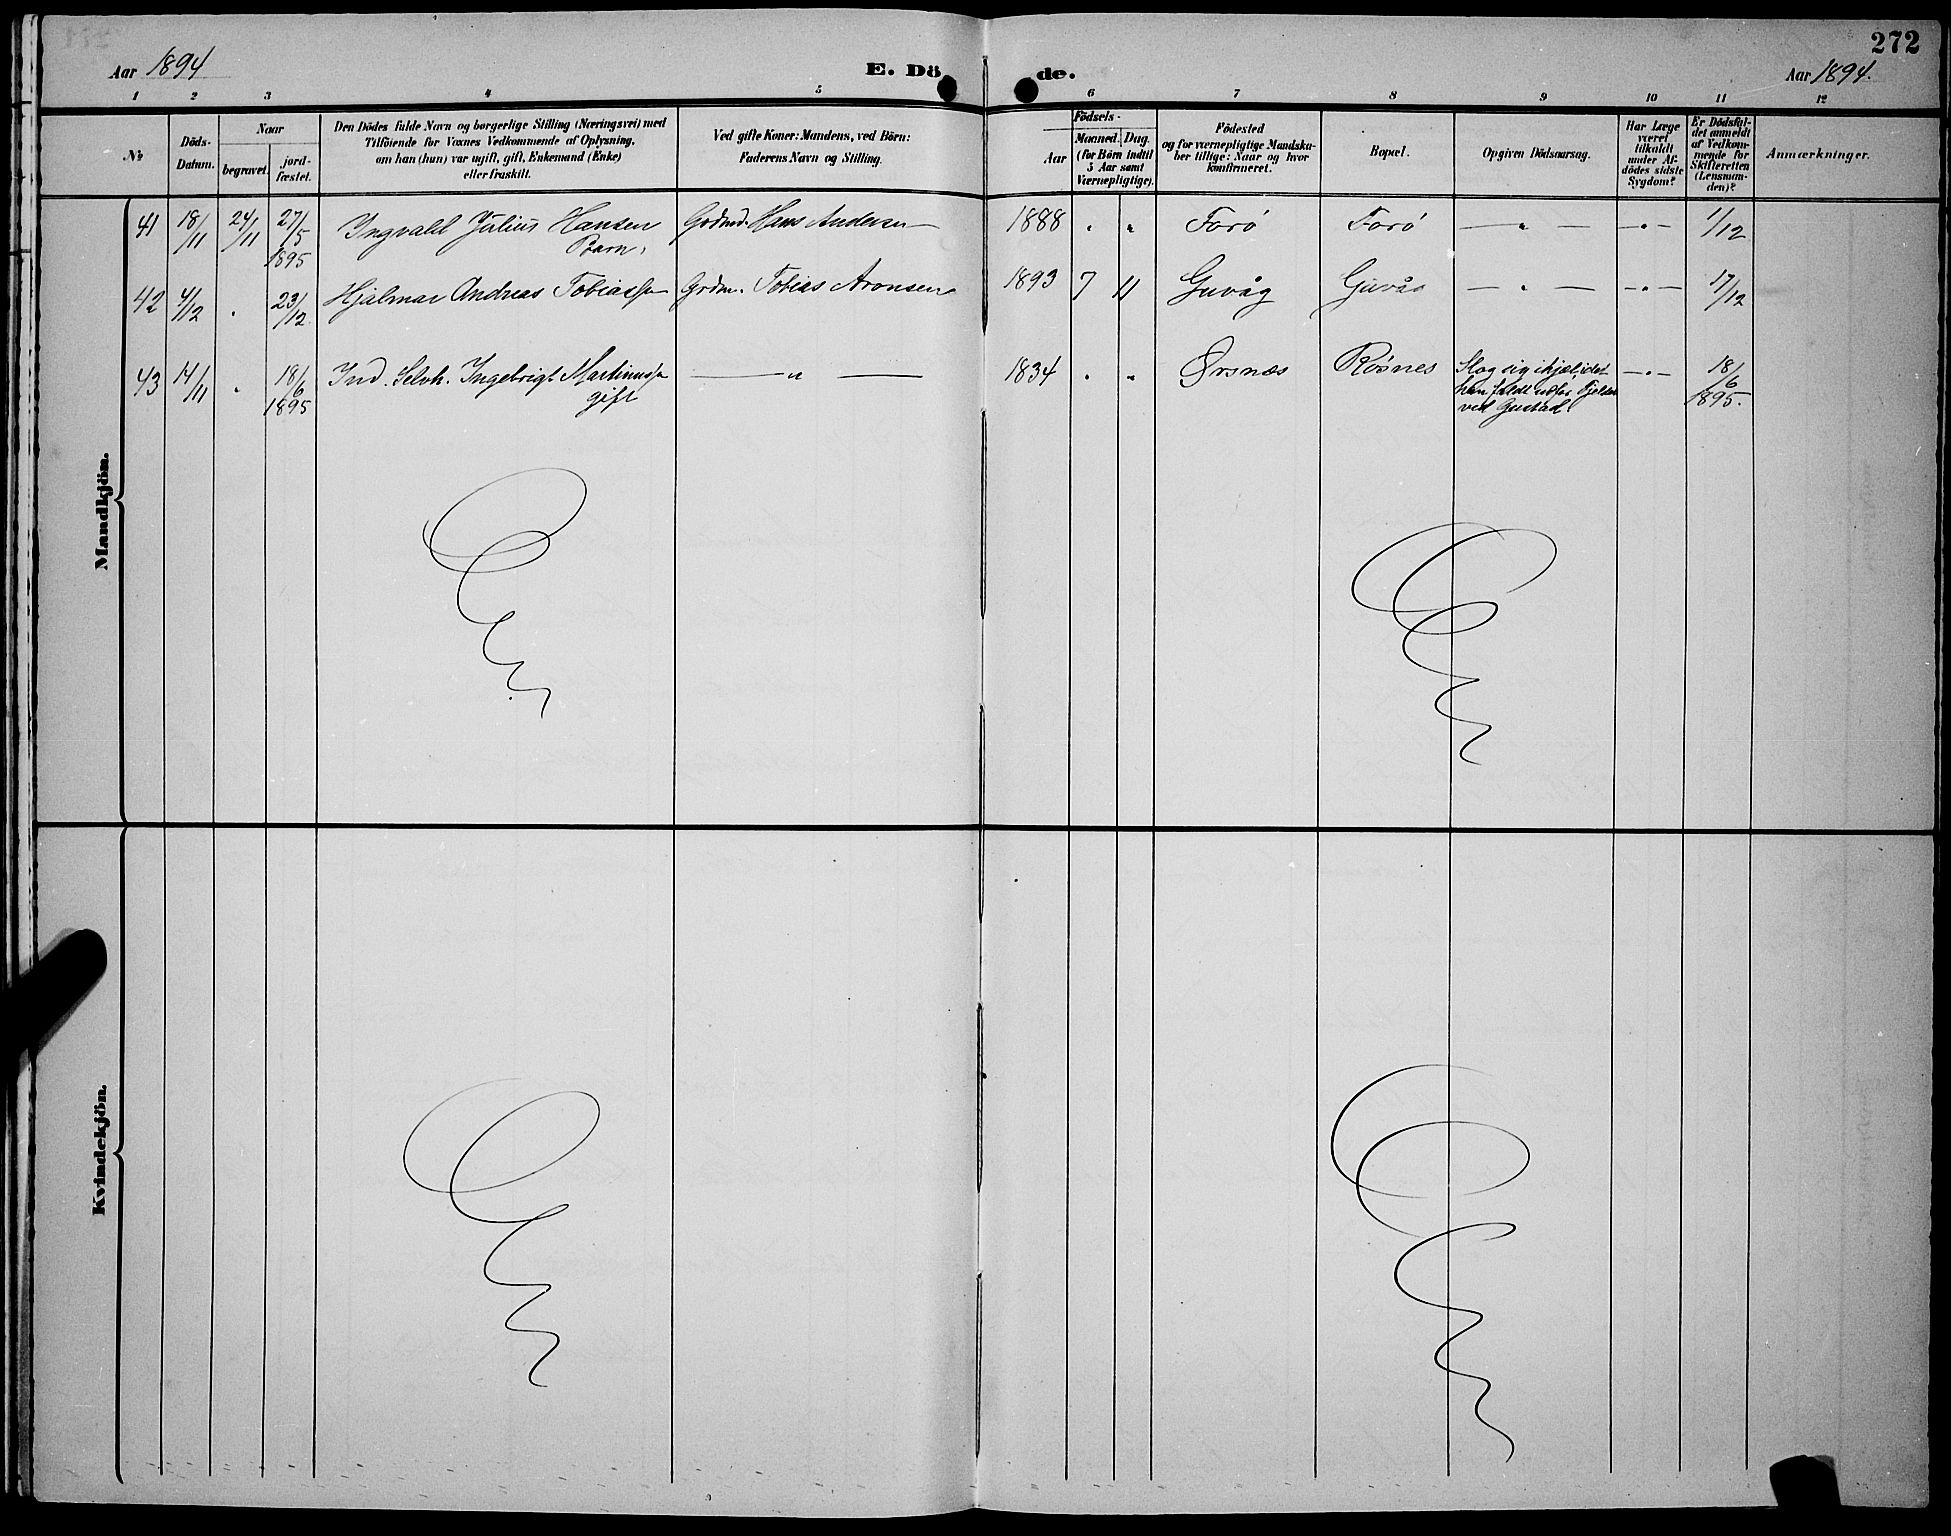 272
Aar 1894
E. Döde.
Aar 1894.
1 2 3 4 5 6 7 8 9 10 11 12
№
Döds-
Datum.
Naar
begravet.
jord-
fæstet.
Den Dödes fulde Navn og borgerlige Stilling (Næringsvei) med
Tilföiende for Voxnes Vedkommende af Oplysning,
om han (hun) var ugift, gift, Enkemand (Enke)
eller fraskilt.
Ved gifte Koner: Mandens, ved Börn:
Faderens Navn og Stilling.
Födsels-
Aar
Maaned. Dag.
(for Börn indtil
5 Aar samt
Værnepligtige).
Födested
og for værnepligtige Mandska-
ber tillige: Naar og hvor
konfirmeret.
Bopæl.
Opgiven Dödsaarsag.
Har Læge
været
tilkaldt
under Af-
dödes sidste
Sygdom?
Er Dödsfal-
det anmeldt
af Vedkom-
mende for
Skifteretten
(Lensman-
den)?
Anmærkninger.
Mandkjön.
41 18/11 24/11 27/5 1895 Ingvald Julius Hansen Grdmd. Hans Andersen 1888 " " Forö Forö — " — — " — 1/12
Barn.
42 4/12 " 23/12 Hjalmar Andreas Tobiassen Grdm. Tobias Aronsen 1893 7 11 Guvåg Guvåg — " — — " — 17/12
43 14/11 " 18/6 1895 Ind. Selvh. Ingebrigt Martinussen — " — 1834 " " Ørsnæs Rösnes Slog sig ihjel, idet — " — 18/6 1895.
gift
han faldt udfor Fjeldet
ved Gustad.
Kvindekjön.